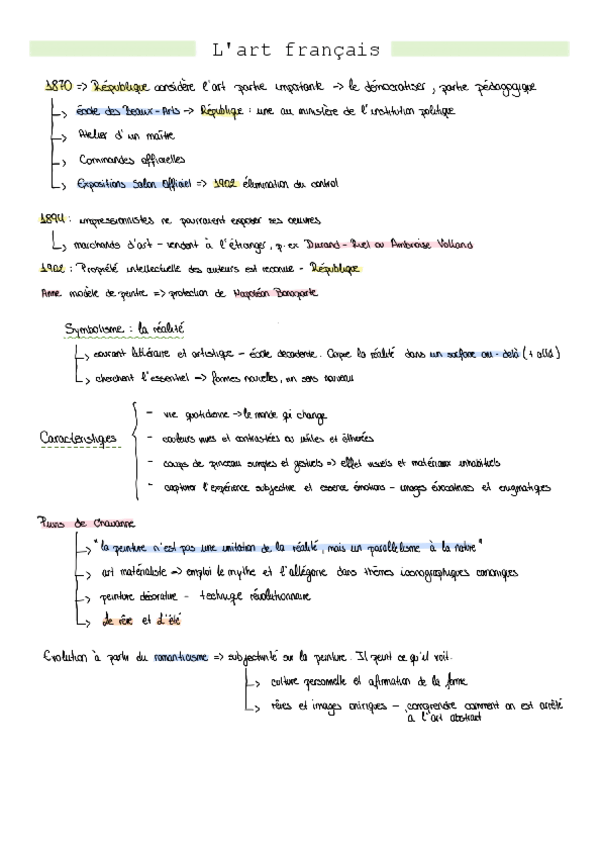 L'art français
1870 => République considère l'art partie importante -> le démocratiser, partie pédagogique
école des Beaux-Arts -> République : une au ministère de l'institution politique
Atelier d'un maître
Commandes officielles
Expositions Salon Officiel => 1902 élimination du control
1894 : impressionnistes ne pourraient exposer ses oeuvres
marchands d'art - vendent à l'étranger, p.ex Durand-Ruel ou Ambroise Vollard
1902 : Propriété intellectuelle des auteurs est reconue - République
Anne modèle de peintre => protection de Napoléon Bonaparte
Symbolisme : la réalité
courant littéraire et artistique - école decadente. Capte la réalité dans un surface au-delà (+ allá)
cherchent l'essentiel -> formes nouvelles, un sens nouveau
Caractéristiques
- vie quotidienne -> le monde qi change
- couleurs vives et contrastées ou subtiles et éthérées
- coups de pinceau simples et gestuels => effet visuels et matériaux inhabituels
- capturer l'expérience subjective et essence émotions - images évocatrices et enigmatiques
Puvis de Chavanne
"la peinture n'est pas une imitation de la réalité, mais un parallelisme à la nature"
art matérialiste -> emploi le mythe et l'allégorie dans thèmes iconographiques canoniques
peinture décorative - technique révolutionnaire
Le rêve et L'été
Evolution à partir du romanticisme => subjectivité sur la peinture. Il peint ce qu'il voit.
culture personnelle et afirmation de la forme
rêves et images oniriques - comprendre comment on est arrêté
à l'art abstract